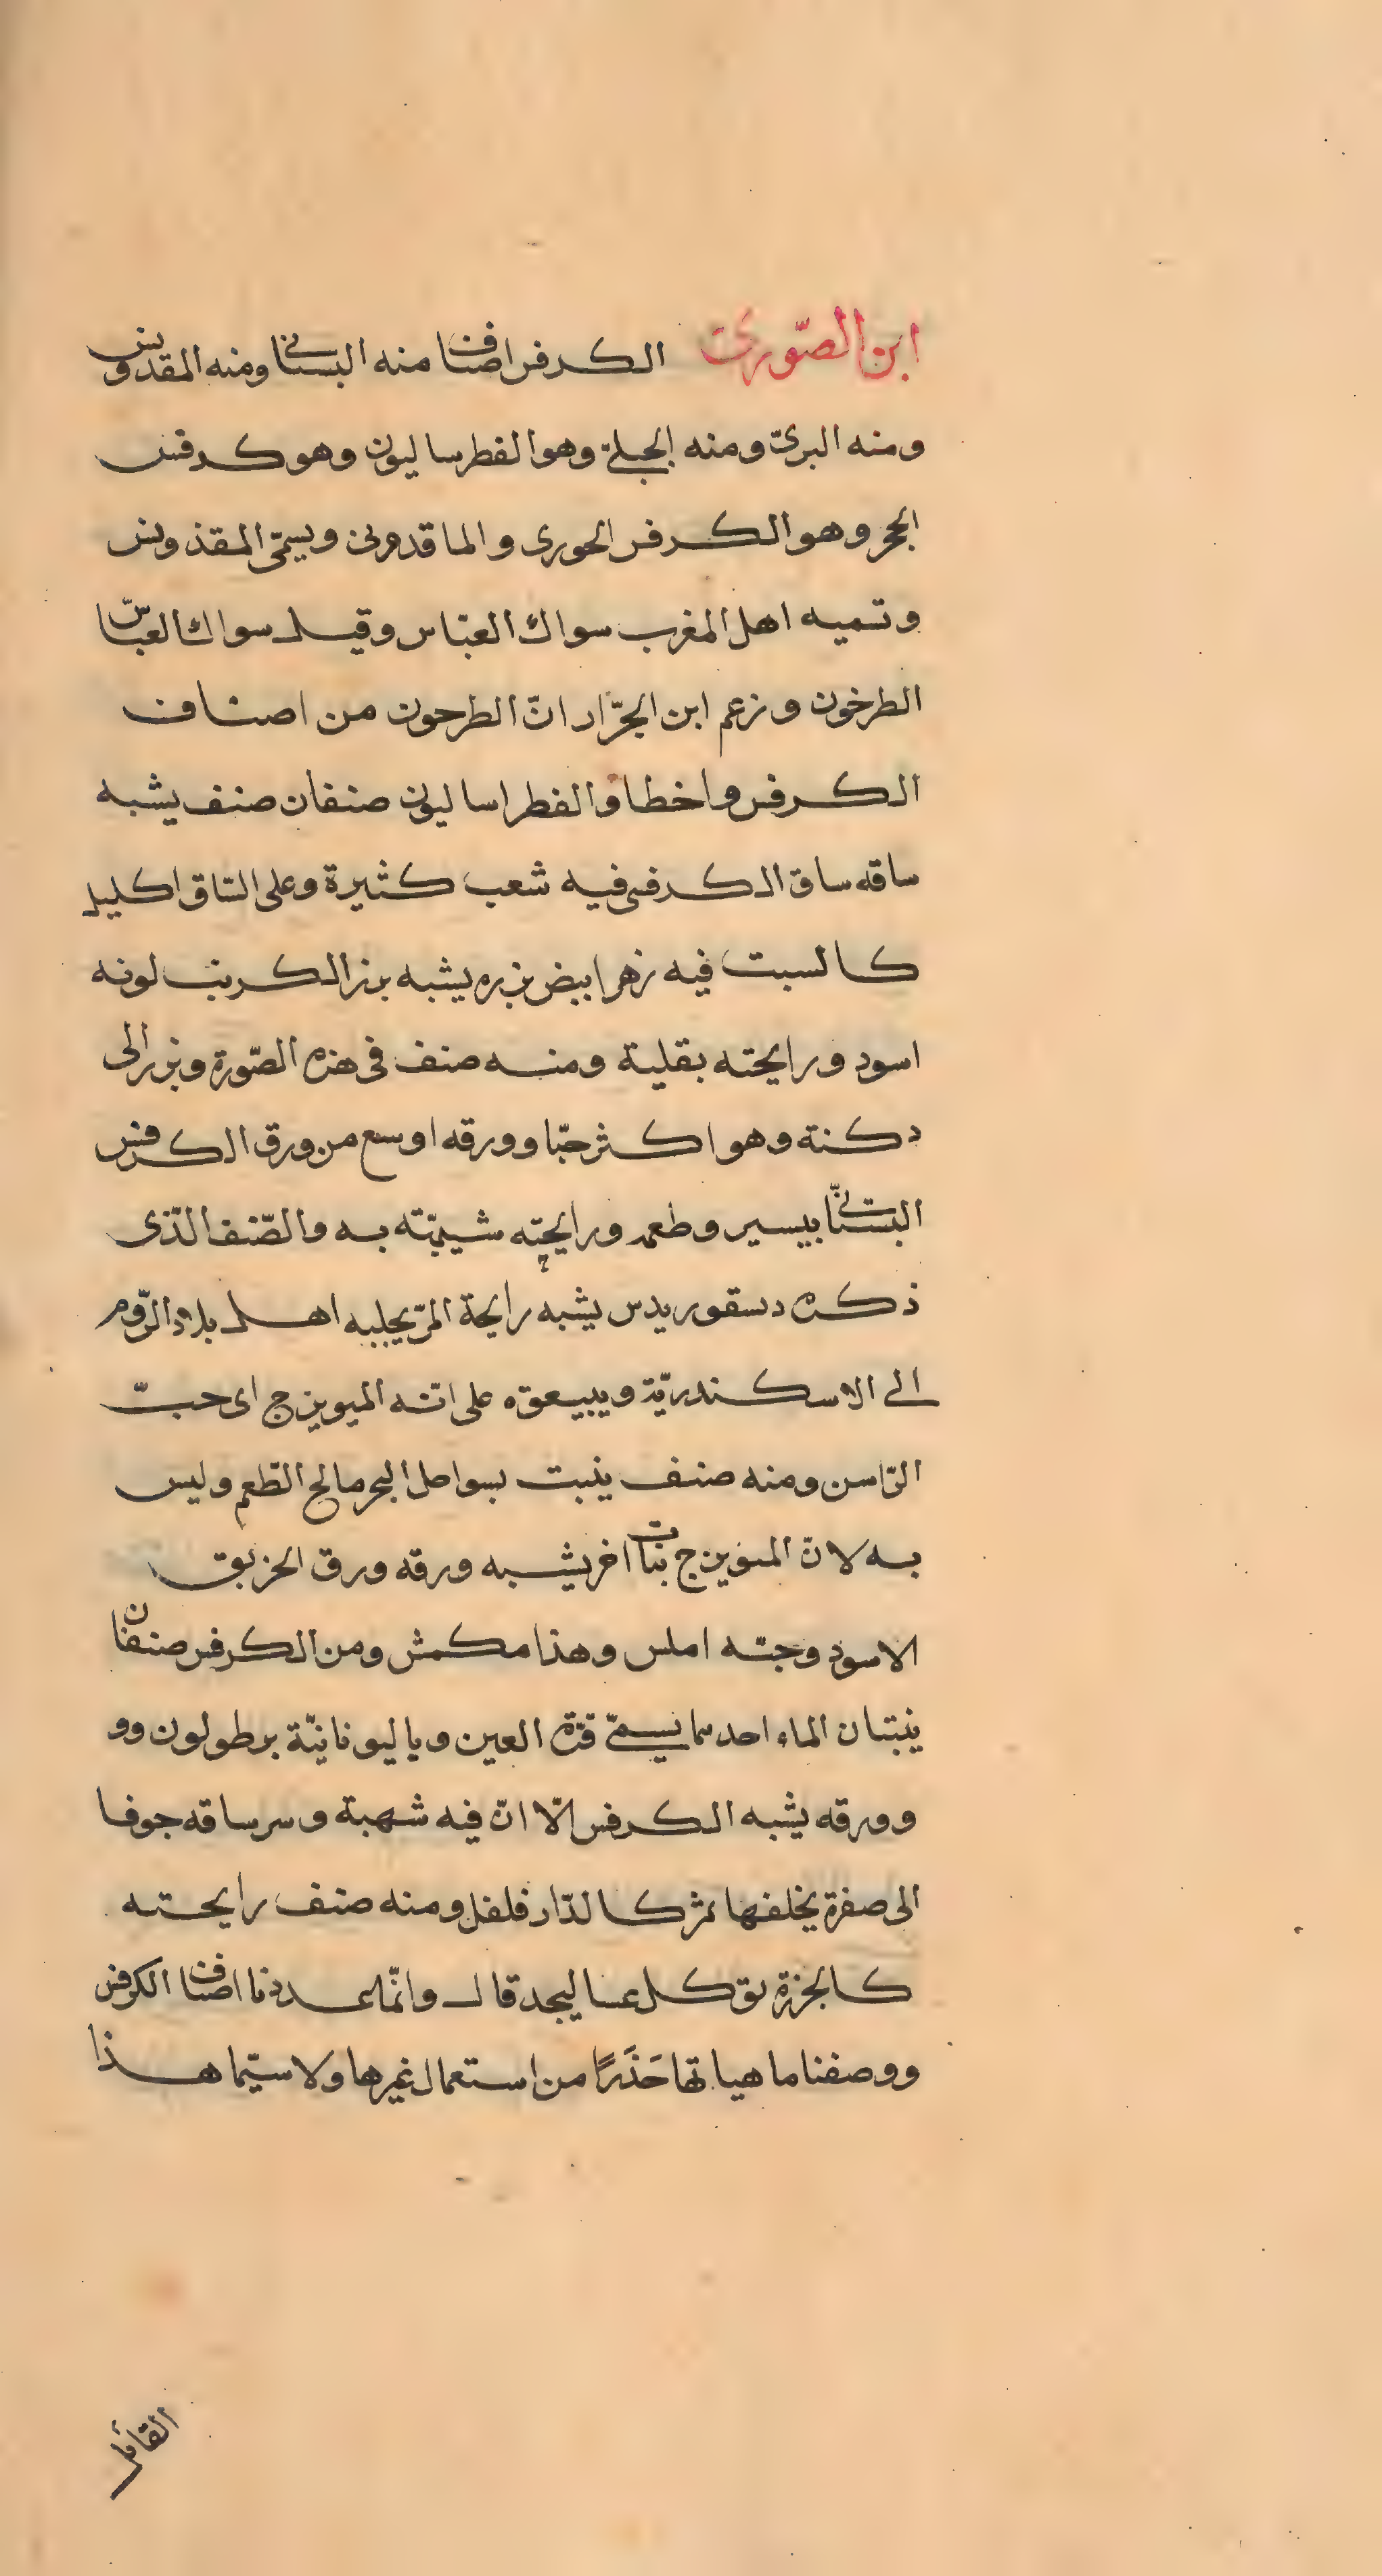 ابن الصّوريّ الكرفس اصناف منه البستاني ومنه المقدونس
ومنه البريّ ومنه الجبليّ وهو الفطرساليون وهو كرفس
الحجر وهو الكرفس الحورى والماقدونى ويسمّى المقذونس
وتسميه اهل المغرب سواك العبّاس وقيل سواك العبّاس
الطرخون وزعم ابن الجزّار انّ الطرحون من اصناف
الكرفس واخطا والفطراساليون صنفان صنف يشبه
ساقه ساق الكرفس فيه شعب كثيرة وعلى السّاق اكليل
كالسبت فيه زهر ابيض بزره يشبه بزر الكرنب لونه
اسود ورايحته بقلية ومنه صنف فى هذه الصّورة وبزر الى
دكنة وهو اكثر حبّا وورقه اوسع من ورق الكرفس
البستانّي بيسير وطعمه ورايحته شبيهته به والصّنف الّذى
ذكره دسقوريدس يشبه رايحة المرّ يجلبه اهل بلاد الرّوم
الى الاسكندريّة ويبيعوه على انّه الميويزج اى حبّ
الرّاسن ومنه صنف ينبت بسواحل البحر مالح الطّعم وليس
به لانّ الميويزج نبات اخر يشبه ورقه ورق الخربق
الاسود وحبّه املس وهذا مكمش ومن الكرفس صنفان
ينبتان الماء احدهما يسمّى قرّة العين وباليونانيّة برطولون وو
وورقه يشبه الكرفس الّا انّ فيه شهبة وسر ساقه جوفا
الى صفرة يخلفها ثمر كالدّار فلفل ومنه صنف رايحته
كالجزرة توكل قال وانّما عددنا اصناف الكرفس
ووصفنا ماهياتها حَذَرًا من استعمال غيرها ولا سيّما هذا
القائل